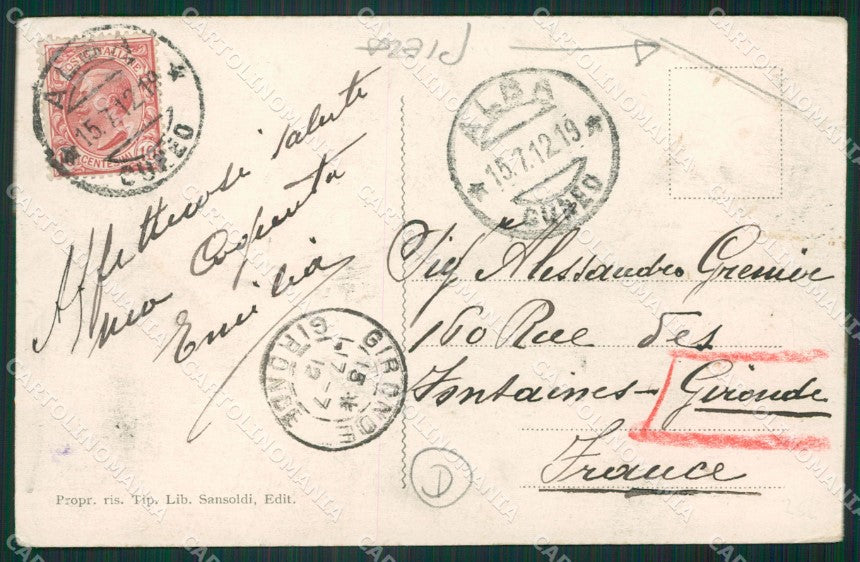 POSTE ITALIANE
CENTESIMI 10
ALBA
15.7.12.19
CUNEO
Affettuosi saluti
tua Cognata
Emilia
Propr. ris. Tip. Lib. Sansoldi, Edit.
ALBA
15.7.12.19
CUNEO
Sig Alessandro Grenier
160 Rue des
Fontaines - Gironde
France
GIRONDE
GIRONDE
D
CARTOLINOMANIA